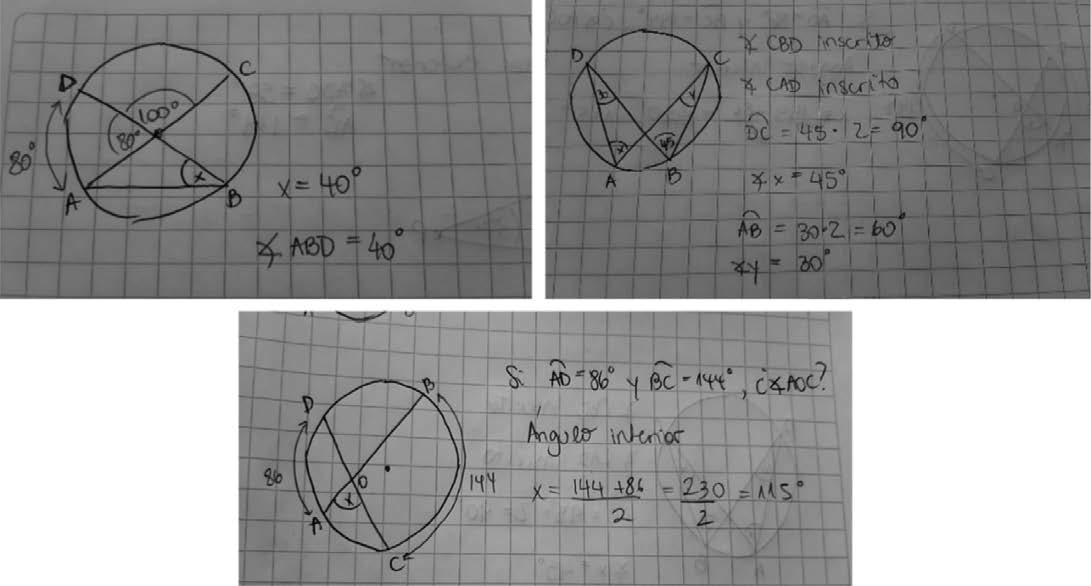 D
C
100°
80°
80°
x
A
B
x = 40°
∡ ABD = 40°
D
C
y
x
45
A
B
∡ CBD inscrito
∡ CAD inscrito
DC = 45 · 2 = 90°
∡ x = 45°
AB = 30·2 = 60°
∡y = 30°
D
B
86
O
x
144
A
C
Si AD = 86° y BC = 144°, ¿∡AOC?
Ángulo interior
x = 144 + 86 = 230 = 115°
2 2